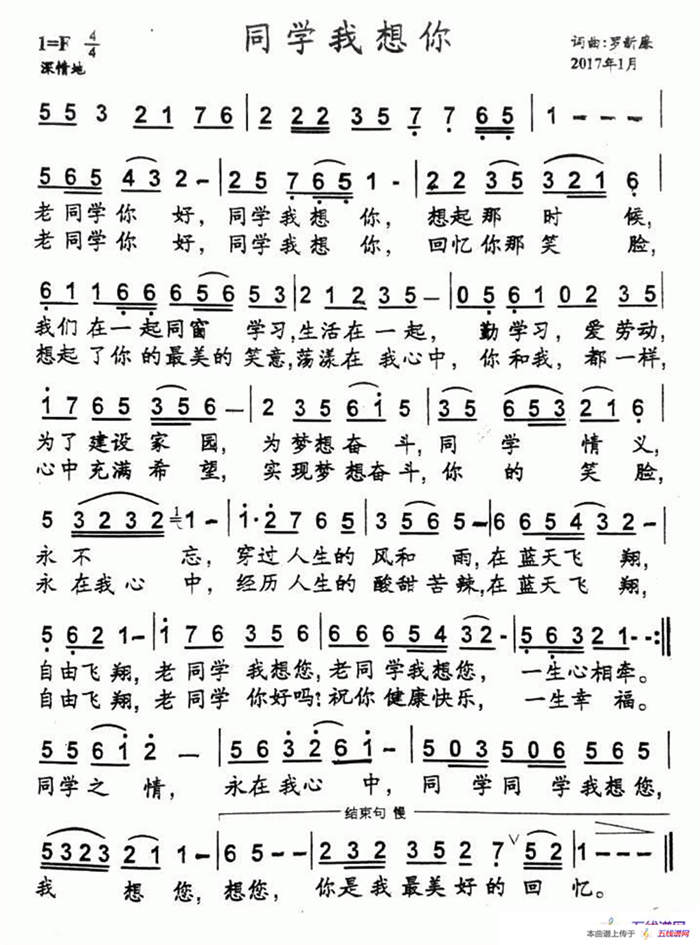 同学我想你
1=F 4/4
词曲:罗新
深情地
2017年1月
5 5 3 2 1 7 6 | 2 2 2 3 5 7 7 6 5 | 1 - - - |
5 6 5 4 3 2 - | 2 5 7 6 5 1 - | 2 2 3 5 3 2 1 6 |
老同学你 好, 同学我想 你, 想起那 时 候,
老同学你 好, 同学我想 你, 回忆你那笑 脸,
6 1 1 6 6 6 5 6 5 3 | 2 1 2 3 5 - | 0 5 6 1 0 2 3 5 |
我们在一起同窗 学习,生活在一起, 勤学习, 爱劳动,
想起了你的最美的笑意,荡漾在我心中, 你和我, 都一样,
1 7 6 5 3 5 6 - | 2 3 5 6 1 5 | 3 5 6 5 3 2 1 6 |
为了建设家 园, 为梦想奋 斗,同 学 情义,
心中充满希 望, 实现梦想奋斗,你 的 笑脸,
5 3 2 3 2 1 - | 1 · 2 7 6 5 | 3 5 6 5 - | 6 6 5 4 3 2 |
永不 忘, 穿过人生的 风和 雨,在蓝天飞 翔,
永在我心 中, 经历人生的 酸甜苦辣,在蓝天飞 翔,
5 6 2 1 - | 1 7 6 3 5 6 | 6 6 6 5 4 3 2 - | 5 6 3 2 1 - :||
自由飞 翔,老同学 我想您,老同学我想您, 一生心相牵。
自由飞 翔,老同学 你好吗?祝你健康快乐, 一生幸 福。
5 5 6 1 2 - | 5 6 3 2 6 1 | 5 0 3 5 0 6 5 6 5 |
同学之 情, 永在我心 中, 同 学同 学我想您,
结束句 慢
5 3 2 3 2 1 1 - | 5 6 5 - | 2 3 2 3 5 2 7 5 2 | 1 - - - ||
我 想 您,想您, 你是我最美好的 回 忆。
五线谱网
本曲谱上传于 五线谱网